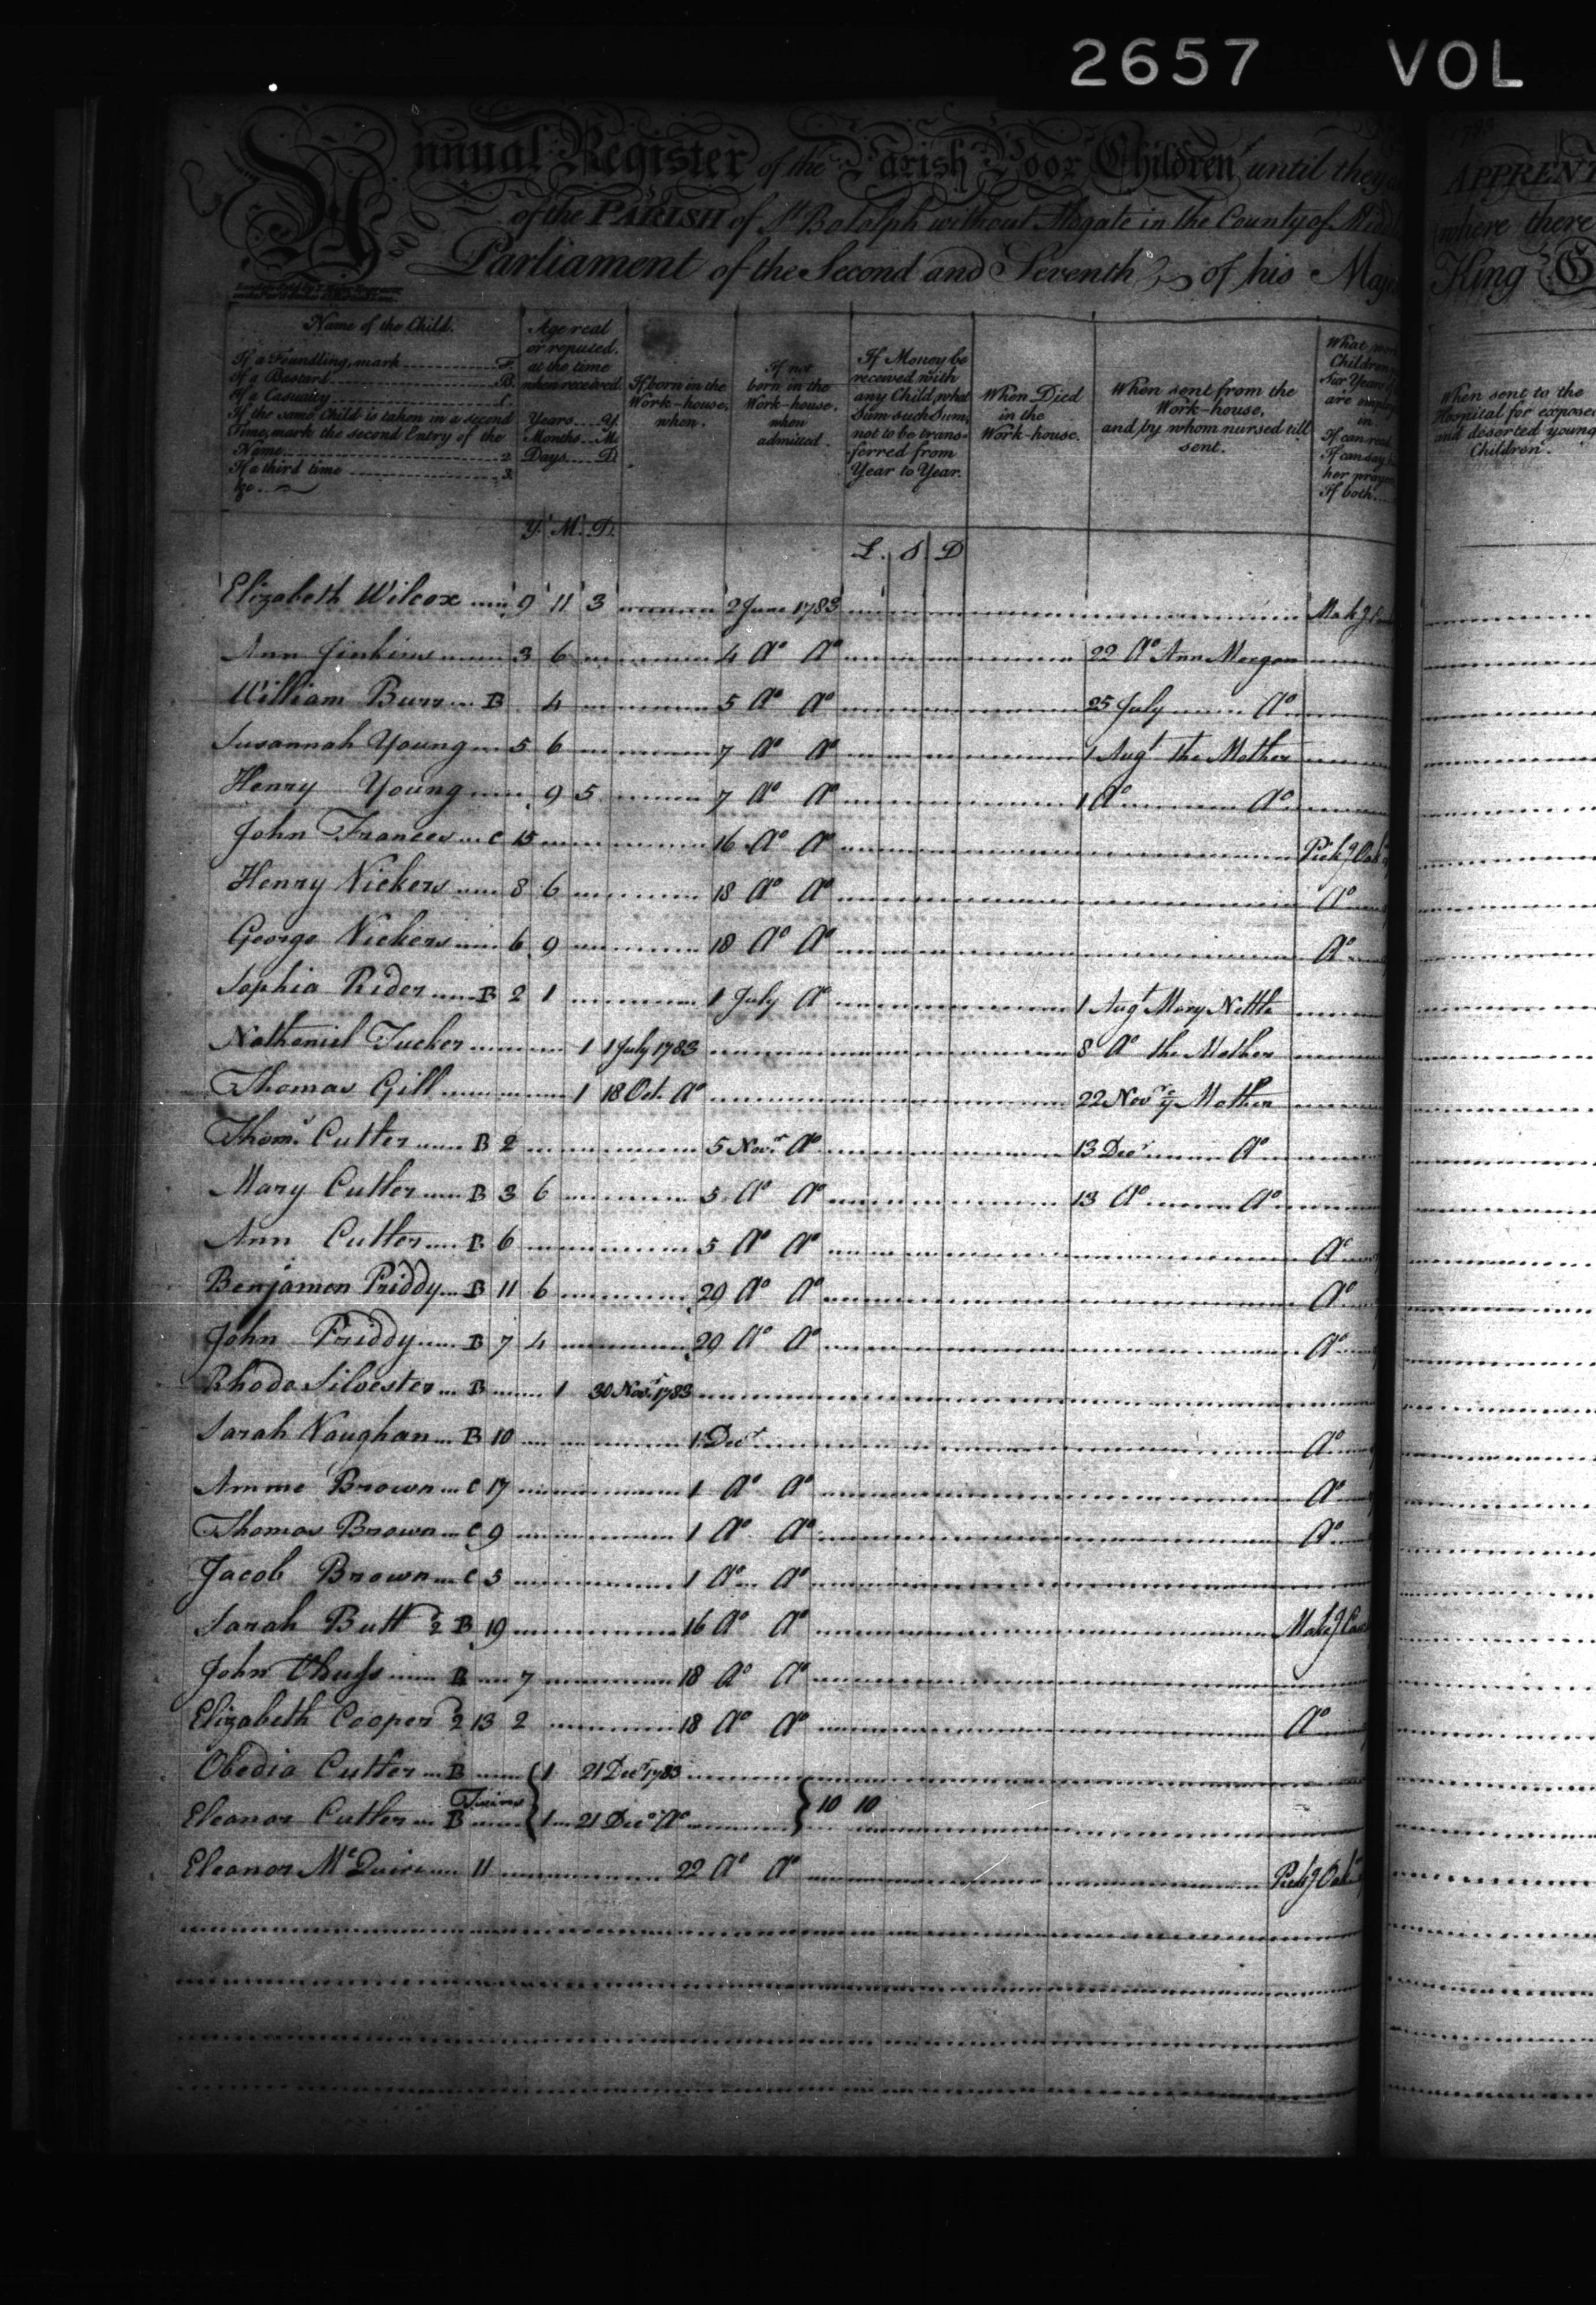 2657 VOL
Annual Register of the Parish Poor Children until they
of the PARISH of St Botolph without Aldgate in the County of Midd
Parliament of the Second and Seventh of his Maje
Name of the Child.
If a Foundling, mark F.
If a Bastard B.
If a Casualty C.
If the same Child is taken in a second
Time, mark the second Entry of the
Name 2.
If a third time 3.
&c.
Age real
or reputed,
at the time
when received
Years Y.
Months M.
Days D.
If born in the
Work-house,
when.
If not
born in the
Work-house,
when
admitted.
If Money be
received with
any Child, what
Sum such Sum,
not to be trans-
ferred from
Year to Year.
When Died
in the
Work-house.
When sent from the
Work-house,
and by whom nursed till
sent.
What
Children
Six Years
are employ
in.
If can read
If can say
her prayers
If both
Y. M. D.
L. S D
Elizabeth Wilcox 9 11 3 2 June 1783
Ann Jinkins 3 6 4 Do Do 22 Do Ann Morgan
William Burr B 4 5 Do Do 25 July Do
Susannah Young 5 6 7 Do Do 1 Augt the Mother
Henry Young 9 5 7 Do Do 1 Do Do
John Frances C 15 16 Do Do Pickg Oak
Henry Vickers 8 6 18 Do Do Do
George Vickers 6 9 18 Do Do Do
Sophia Rider B 2 1 1 July Do 1 Augt Mary Nettle
Nathaniel Tucker 1 1 July 1783 8 Do the Mother
Thomas Gill 1 18 Oct. Do 22 Novr ye Mother
Thoms Cutler B 2 5 Novr Do 13 Decr Do
Mary Cutler B 3 6 5 Do Do 13 Do Do
Ann Cutler B 6 5 Do Do Do
Benjamen Priddy B 11 6 29 Do Do Do
John Priddy B 7 4 29 Do Do Do
Rhoda Silvester B 1 30 Novr 1783
Sarah Vaughan B 10 1 Decr Do
Amme Brown C 17 1 Do Do Do
Thomas Brown C 9 1 Do Do Do
Jacob Brown C 5 1 Do Do
Sarah Butt 2 B 19 16 Do Do Makg
John B 7 18 Do Do
Elizabeth Cooper 2 13 2 18 Do Do Do
Obedia Cutler B 1 21 Decr 1783
Twins 10 10
Eleanor Cutler B 1 21 Decr Do
Eleanor McQuire 11 22 Do Do Pickg Oak
APPRENT
where there
King G
When sent to the
Hospital for expose
and deserted young
Children.